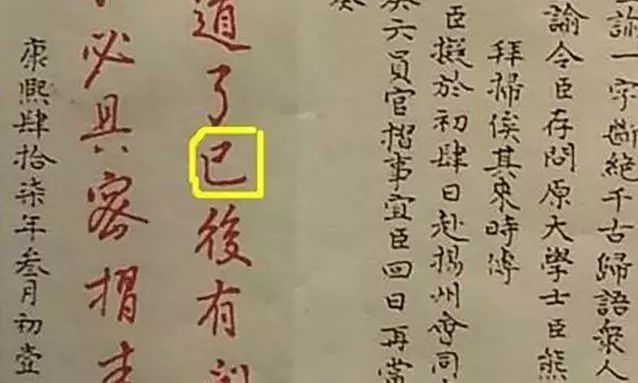 諭一字斷絕千古歸語衆人
諭令臣存問原大學士臣熊
拜掃俟其來時傳
臣擬於初肆日赴揚州會同
六員官摺事宜臣回日再當
道了已後有
必具密摺
康熙肆拾柒年叁月初壹